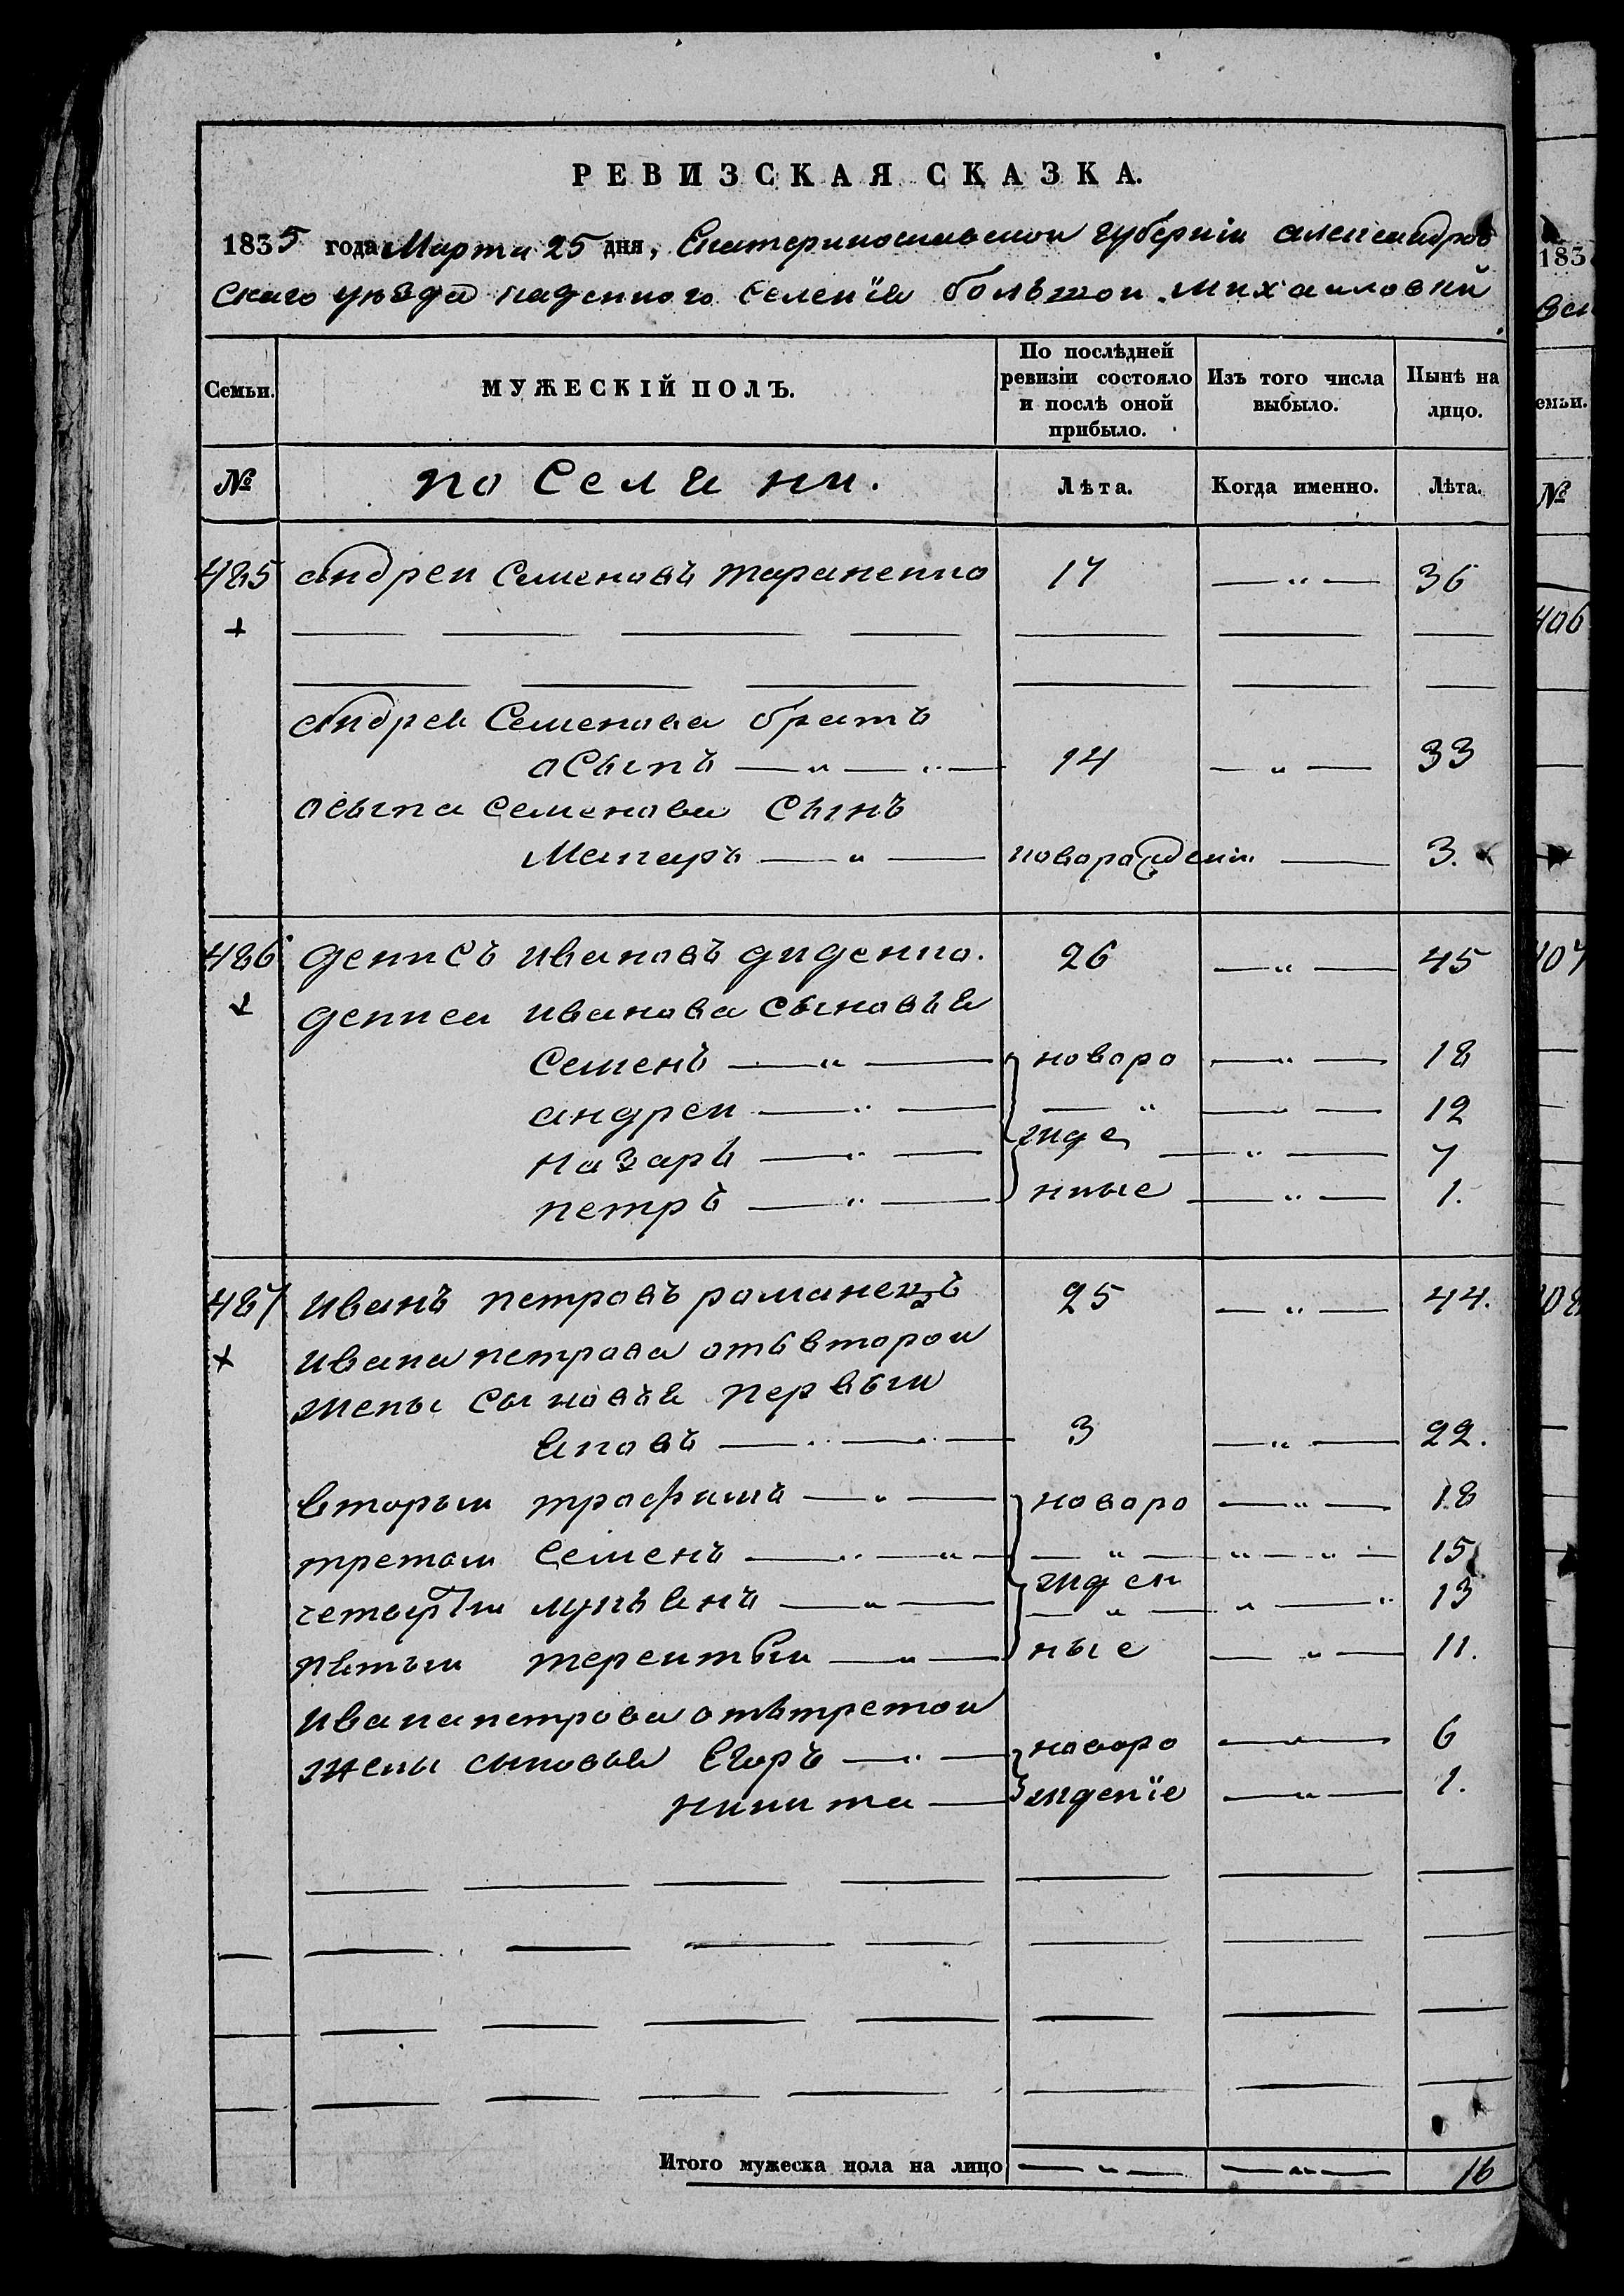 РЕВИЗСКАЯ СКАЗКА.
1835 года Марта 25 дня, Екатеринославской губерніи александров
скаго уезда казенного селенія большой михаиловки
Семьи. МУЖЕСКІЙ ПОЛЪ. По послѣдней ревизіи состояло и послѣ оной прибыло. Изъ того числа выбыло. Нынѣ на лицо.
№ поселяни. Лѣта. Когда именно. Лѣта.
485 андреи Семеновъ тараненко 17 — " — 36
+
андрея Семенова братъ
осыпъ — " — " — 14 — " — 33
осыпа семенова сынъ
Макаръ — " — новорожден — 3.
486 денисъ ивановъ диденко. 26 — " — 45
+
дениса иванова сыновья
Семенъ — " — новоро — " — 18
андреи — " — — " — — 12
назаръ — " — жде — " — 7
петръ — " — нные — " — 1.
487 иванъ петровъ романецъ 25 — " — 44.
+
ивана петрова отъ второи
жены сыновья первыи
яковъ — " — 3 — " — 22.
вторыи трофимъ — " — новоро — " — 18
третои семенъ — " — " — — " — " — " — 15
четвертыи лукьянъ — " — жден — " — " — " 13
пятыи терентьи — " — ные — " — 11.
ивана петрова отътретои
жены сыновья Егоръ — " — новоро — " — 6
никита — жденіе — " — 1.
Итого мужеска пола на лицо — " — — " — 16
183
емьи.
№
406
407
408